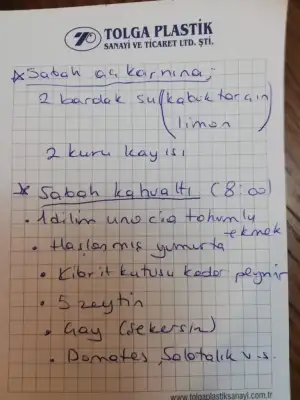 TOLGA PLASTİK
SANAYİ VE TİCARET LTD. ŞTİ.
* Sabah aç karnına;
2 bardak su (kabuk tarçın
limon)
2 kuru kayısı
* Sabah kahvaltı (8:00)
• 1 dilim uno cia tohumlu
ekmek
• Haşlanmış yumurta
• Kibrit kutusu kadar peynir
• 5 zeytin
• Çay (şekersiz)
• Domates, Salatalık v.s.
www.tolgaplastiksanayi.com.tr